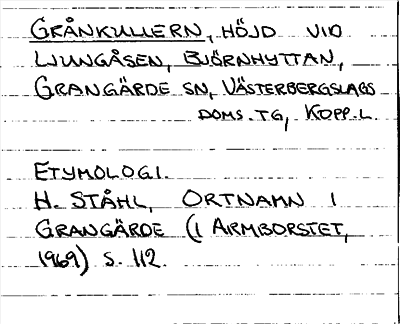 GRÅNKULLERN, HÖJD VID
LJUNGÅSEN, BJÖRNHYTTAN,
GRANGÄRDE SN, VÄSTERBERGSLAGS
DOMS. TG, KOPP. L.
ETYMOLOGI.
H. STÅHL, ORTNAMN I
GRANGÄRDE (I ARMBORSTET,
1969) S. 112.